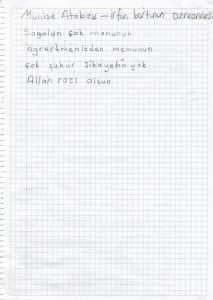 Munise Atabey - irfan bartunun anneannesi
Sağolun çok memunuh
ogrertmenleden memunun
çok şukur şikayetim yok
Allah razı olsun